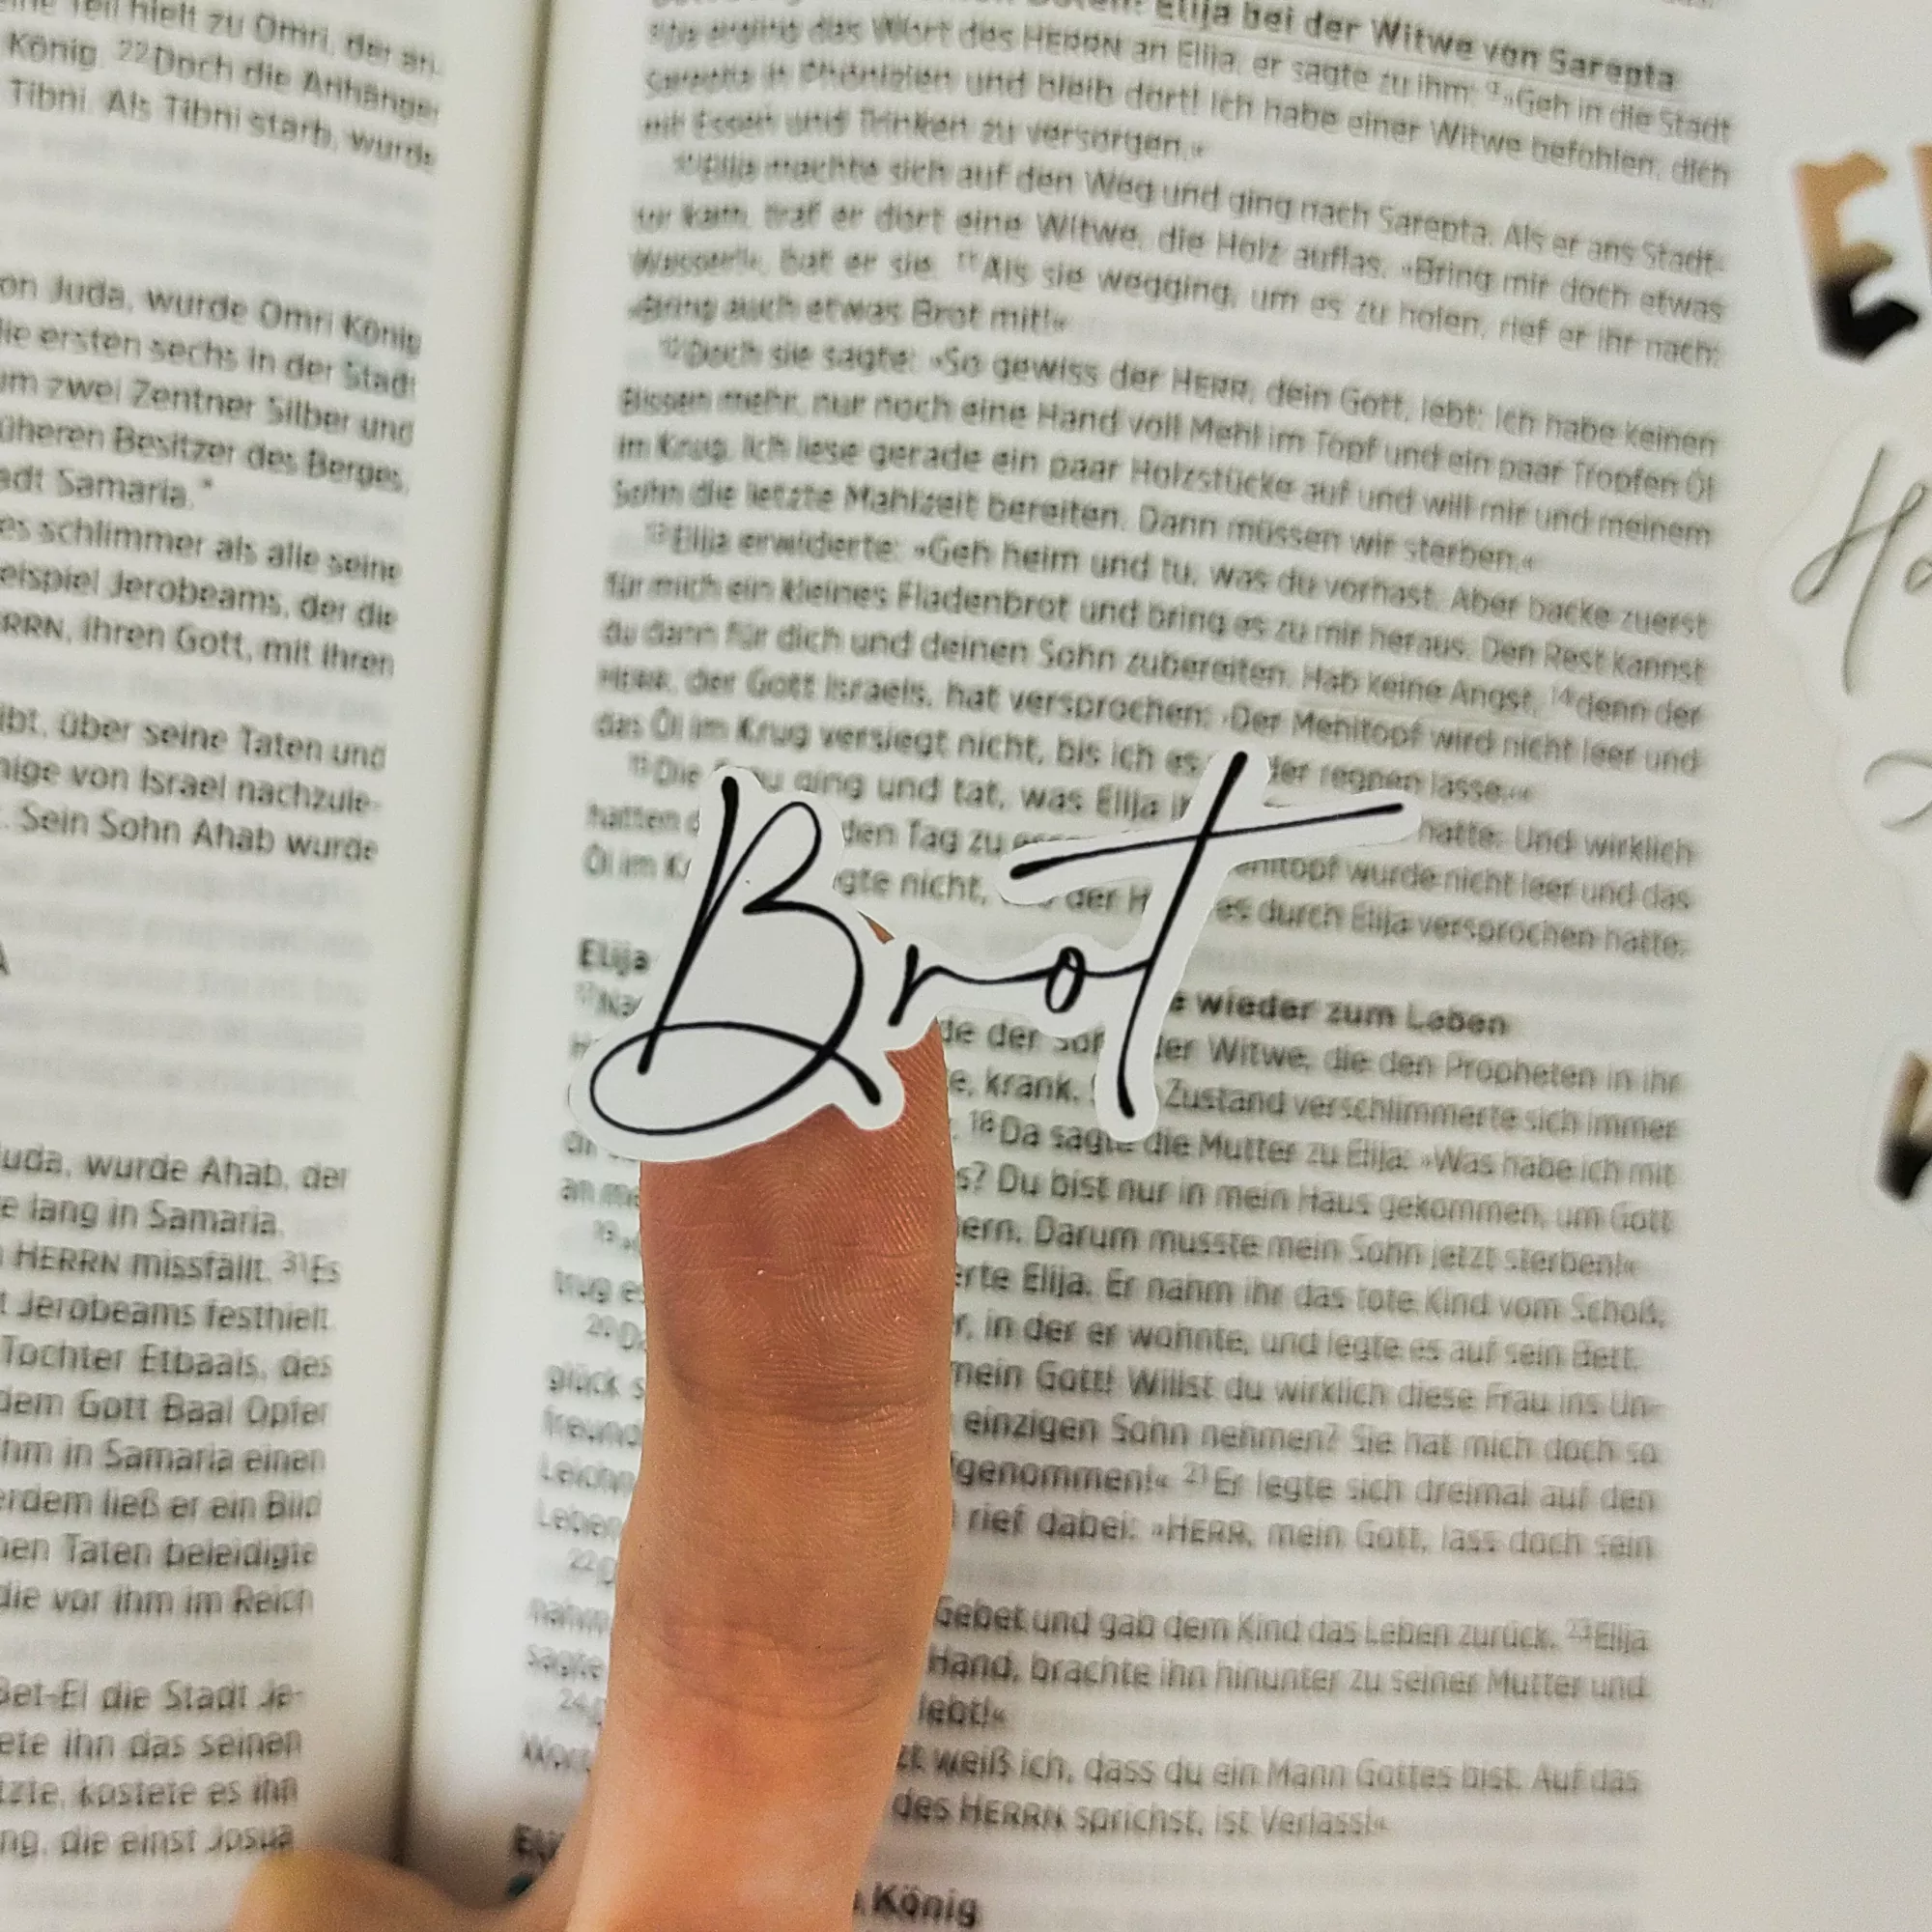 eine Teil hielt zu Omri, der an-
König. 22Doch die Anhänger
Tibni. Als Tibni starb, wurde
on Juda, wurde Omri König
die ersten sechs in der Stadt
um zwei Zentner Silber und
üheren Besitzer des Berges,
adt Samaria.*
es schlimmer als alle seine
eispiel Jerobeams, der die
ERRN, ihren Gott, mit ihren
ibt, über seine Taten und
nige von Israel nachzule-
. Sein Sohn Ahab wurde
uda, wurde Ahab, der
e lang in Samaria.
HERRN missfällt. 31Es
t Jerobeams festhielt.
Tochter Etbaals, des
dem Gott Baal Opfer
ihm in Samaria einen
erdem ließ er ein Bild
nen Taten beleidigte
die vor ihm im Reich
Bet-El die Stadt Je-
ete ihn das seinen
tzte, kostete es ihn
ng, die einst Josua
Elija bei der Witwe von Sarepta
8Da erging das Wort des HERRN an Elija, er sagte zu ihm: 9»Geh in die Stadt
Sarepta in Phönizien und bleib dort! Ich habe einer Witwe befohlen, dich
mit Essen und Trinken zu versorgen.«
10Elija machte sich auf den Weg und ging nach Sarepta. Als er ans Stadt-
tor kam, traf er dort eine Witwe, die Holz auflas. »Bring mir doch etwas
Wasser!«, bat er sie. 11Als sie wegging, um es zu holen, rief er ihr nach:
»Bring auch etwas Brot mit!«
12Doch sie sagte: »So gewiss der HERR, dein Gott, lebt: Ich habe keinen
Bissen mehr, nur noch eine Hand voll Mehl im Topf und ein paar Tropfen Öl
im Krug. Ich lese gerade ein paar Holzstücke auf und will mir und meinem
Sohn die letzte Mahlzeit bereiten. Dann müssen wir sterben.«
13Elija erwiderte: »Geh heim und tu, was du vorhast. Aber backe zuerst
für mich ein kleines Fladenbrot und bring es zu mir heraus. Den Rest kannst
du dann für dich und deinen Sohn zubereiten. Hab keine Angst, 14denn der
HERR, der Gott Israels, hat versprochen: ›Der Mehltopf wird nicht leer und
das Öl im Krug versiegt nicht, bis ich es der regnen lasse.‹«
15Die ging und tat, was Elija hatte. Und wirklich
hatten den Tag zu wurde nicht leer und das
Öl im gte nicht, der es durch Elija versprochen hatte.
Brot
Elija wieder zum Leben
de der der Witwe, die den Propheten in ihr
e, krank. Zustand verschlimmerte sich immer
18Da sagte die Mutter zu Elija: »Was habe ich mit
s? Du bist nur in mein Haus gekommen, um Gott
an ern. Darum musste mein Sohn jetzt sterben!«
19 erte Elija. Er nahm ihr das tote Kind vom Schoß,
trug es r, in der er wohnte, und legte es auf sein Bett.
20 mein Gott! Willst du wirklich diese Frau ins Un-
glück einzigen Sohn nehmen? Sie hat mich doch so
freund genommen!« 21Er legte sich dreimal auf den
Leichn rief dabei: »HERR, mein Gott, lass doch sein
Leben
22 Gebet und gab dem Kind das Leben zurück. 23Elija
nahm Hand, brachte ihn hinunter zu seiner Mutter und
sagte lebt!«
24 weiß ich, dass du ein Mann Gottes bist. Auf das
Wort des HERRN sprichst, ist Verlass!«
König